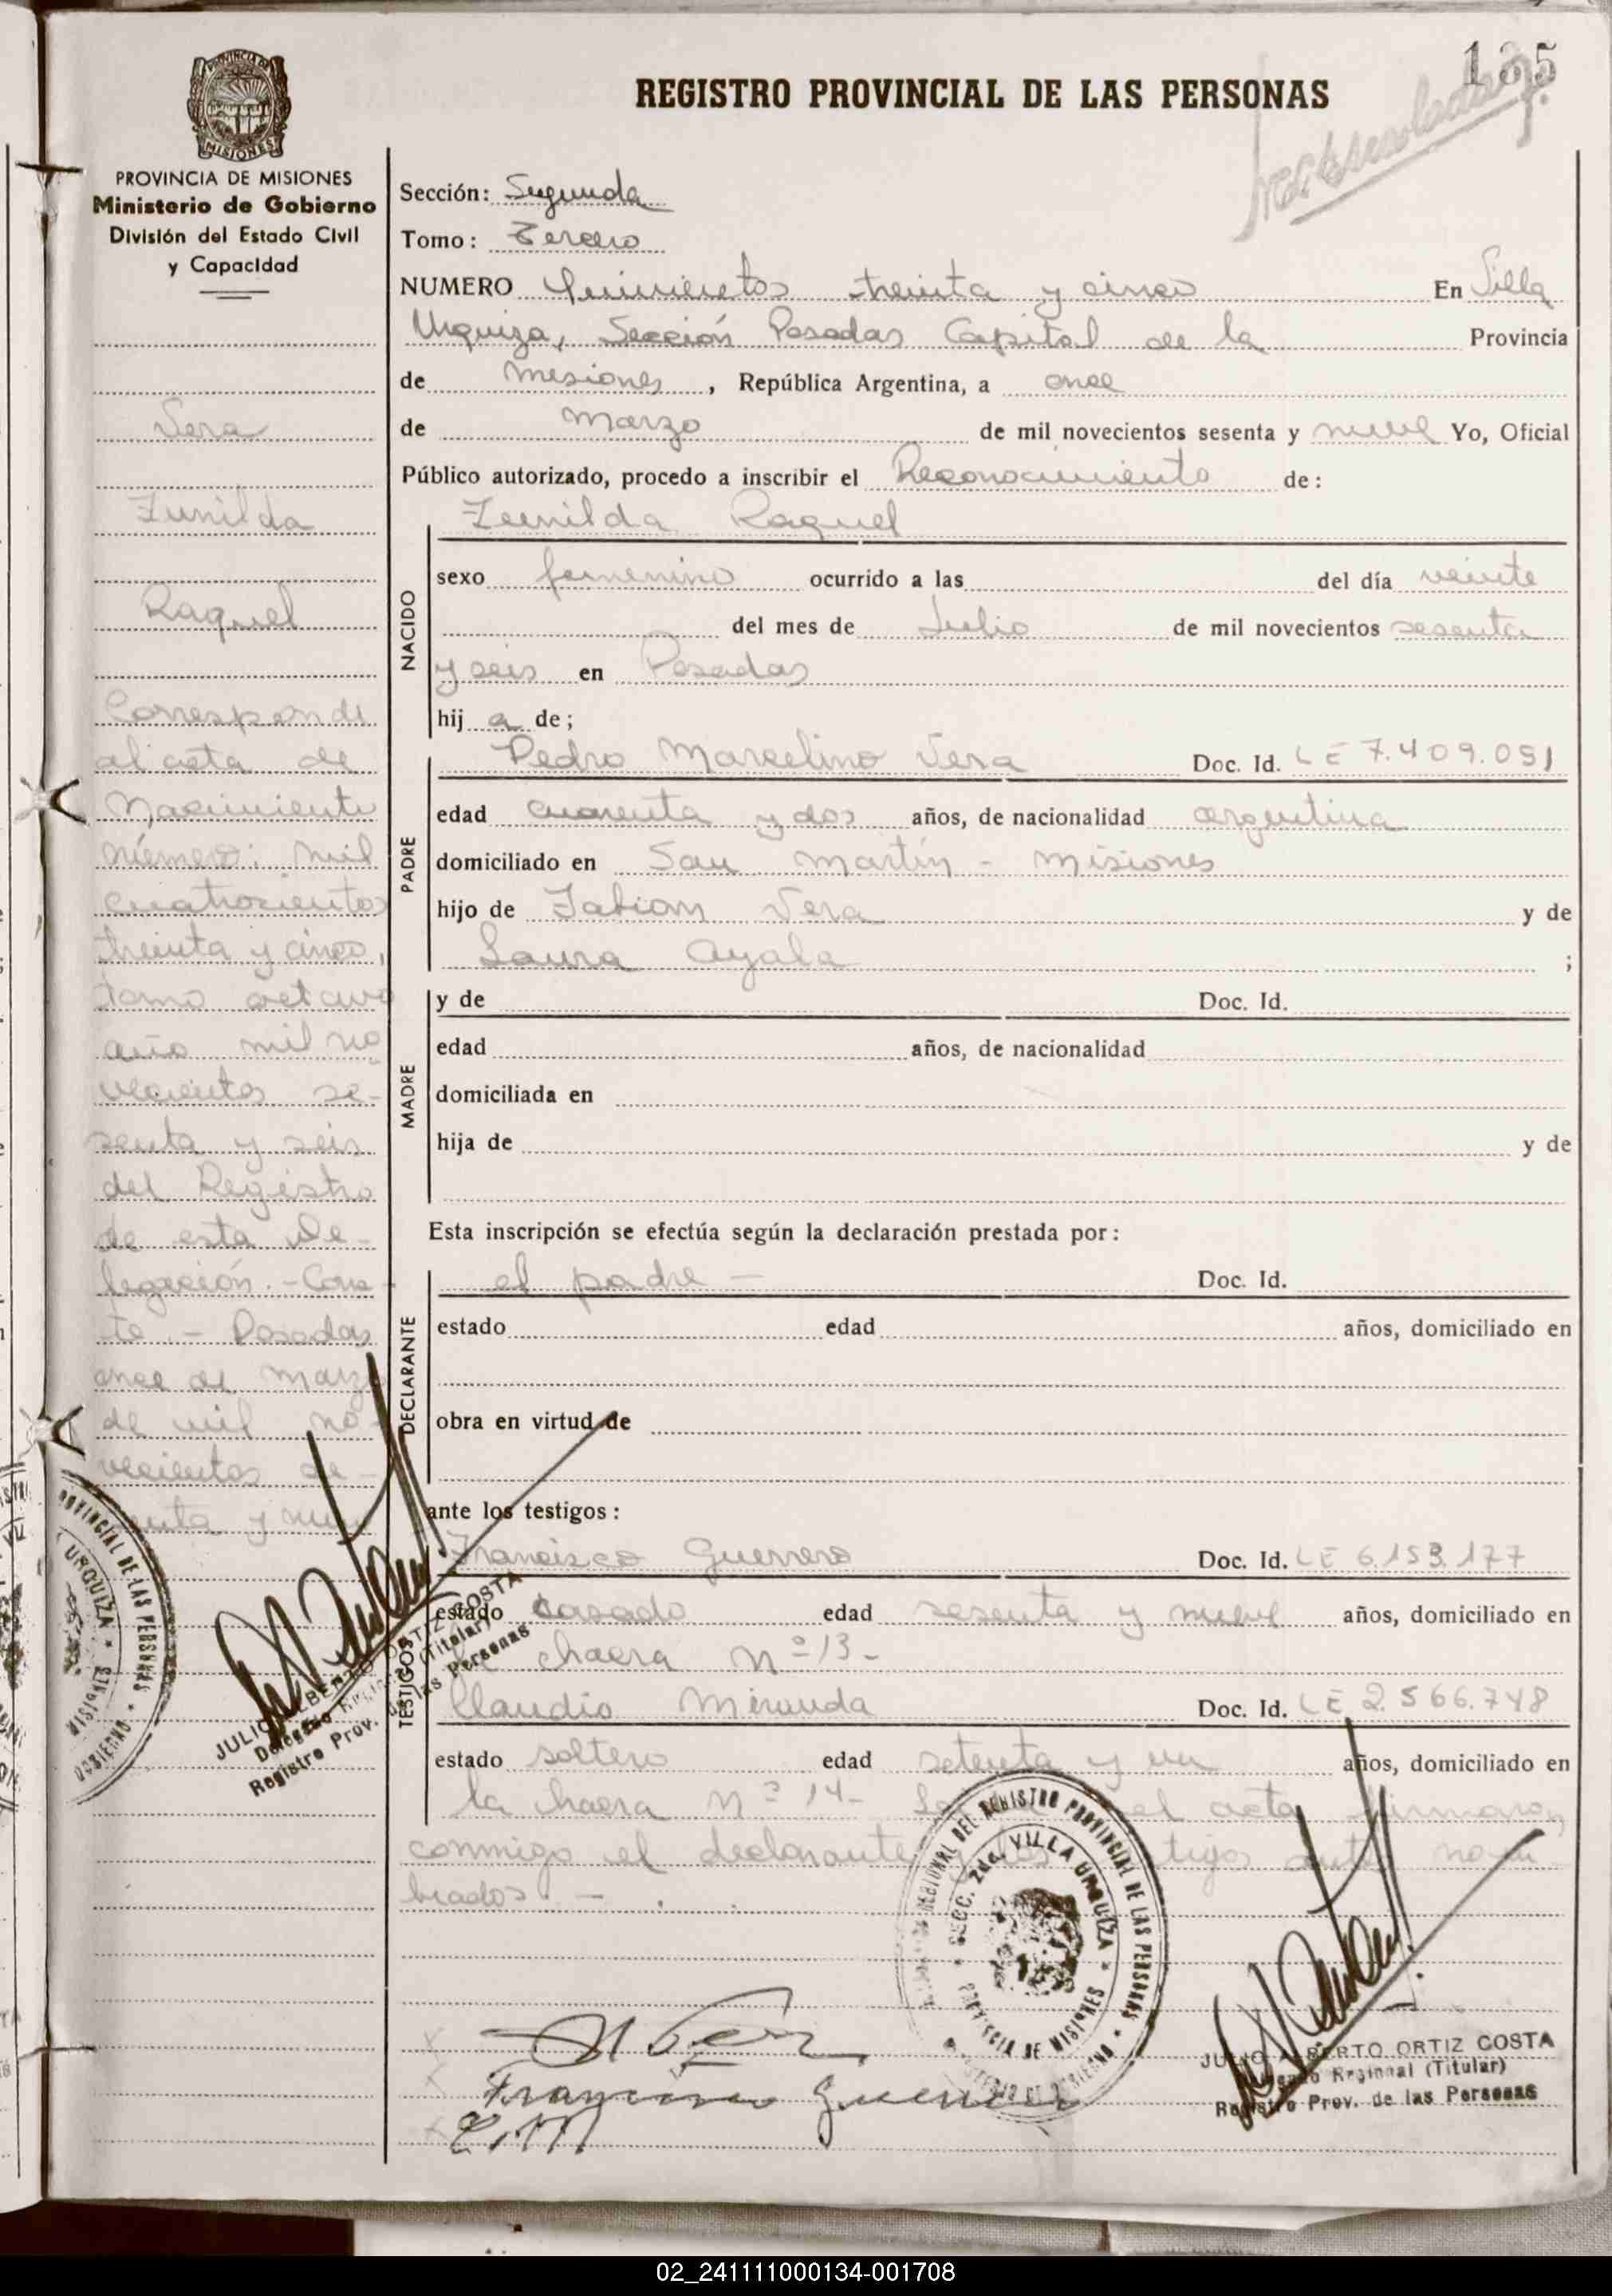 135
REGISTRO PROVINCIAL DE LAS PERSONAS
MISIONES
PROVINCIA DE MISIONES
Ministerio de Gobierno
División del Estado Civil
y Capacidad
Vera
Zunilda
Raquel
Corresponde
al acta de
Nacimiento
número: mil
cuatrocientos
treinta y cinco,
tomo octavo
año mil no
vecientos se-
senta y seis
del Registro
de esta De-
legación. - Cons
te. - Posadas,
once de marzo
de mil no-
vecientos se-
senta y nueve
Sección: Segunda
Tomo: Tercero
NUMERO Quinientos treinta y cinco En Villa
Urquiza, Sección Posadas Capital de la Provincia
de Misiones, República Argentina, a once
de Marzo de mil novecientos sesenta y nueve Yo, Oficial
Público autorizado, procedo a inscribir el Reconocimiento de:
NACIDO
Zunilda Raquel
sexo femenino ocurrido a las del día veinte
del mes de Julio de mil novecientos sesenta
y seis en Posadas
hij a de;
PADRE
Pedro Marcelino Vera Doc. Id. LE 7.409.051
edad cuarenta y dos años, de nacionalidad argentina
domiciliado en San Martín - Misiones
hijo de Fabian Vera y de
Laura Ayala ;
MADRE
y de Doc. Id.
edad años, de nacionalidad
domiciliada en
hija de y de
Esta inscripción se efectúa según la declaración prestada por:
DECLARANTE
el padre — Doc. Id.
estado edad años, domiciliado en
obra en virtud de
ante los testigos:
TESTIGOS
Francisco Guerrero Doc. Id. LE 6.153.177
estado casado edad sesenta y nueve años, domiciliado en
la chacra Nº 13 -
Claudio Miranda Doc. Id. LE 2.566.748
estado soltero edad setenta y un años, domiciliado en
la chacra Nº 14 - el acta firmaron
conmigo el declarante testigos ante nom
brados. —
PROVINCIAL DE LAS PERSONAS
URQUIZA * MISIONES
GOBIERNO
JULIO ALBERTO ORTIZ COSTA
Delegado Regional (Titular)
Registro Prov. de las Personas
REGIONAL DEL REGISTRO PROVINCIAL DE LAS PERSONAS
SECC. 2da. VILLA URQUIZA * PROVINCIA DE MISIONES
Francisco Guerrero
C.M
JULIO ALBERTO ORTIZ COSTA
Delegado Regional (Titular)
Registro Prov. de las Personas
02_241111000134-001708